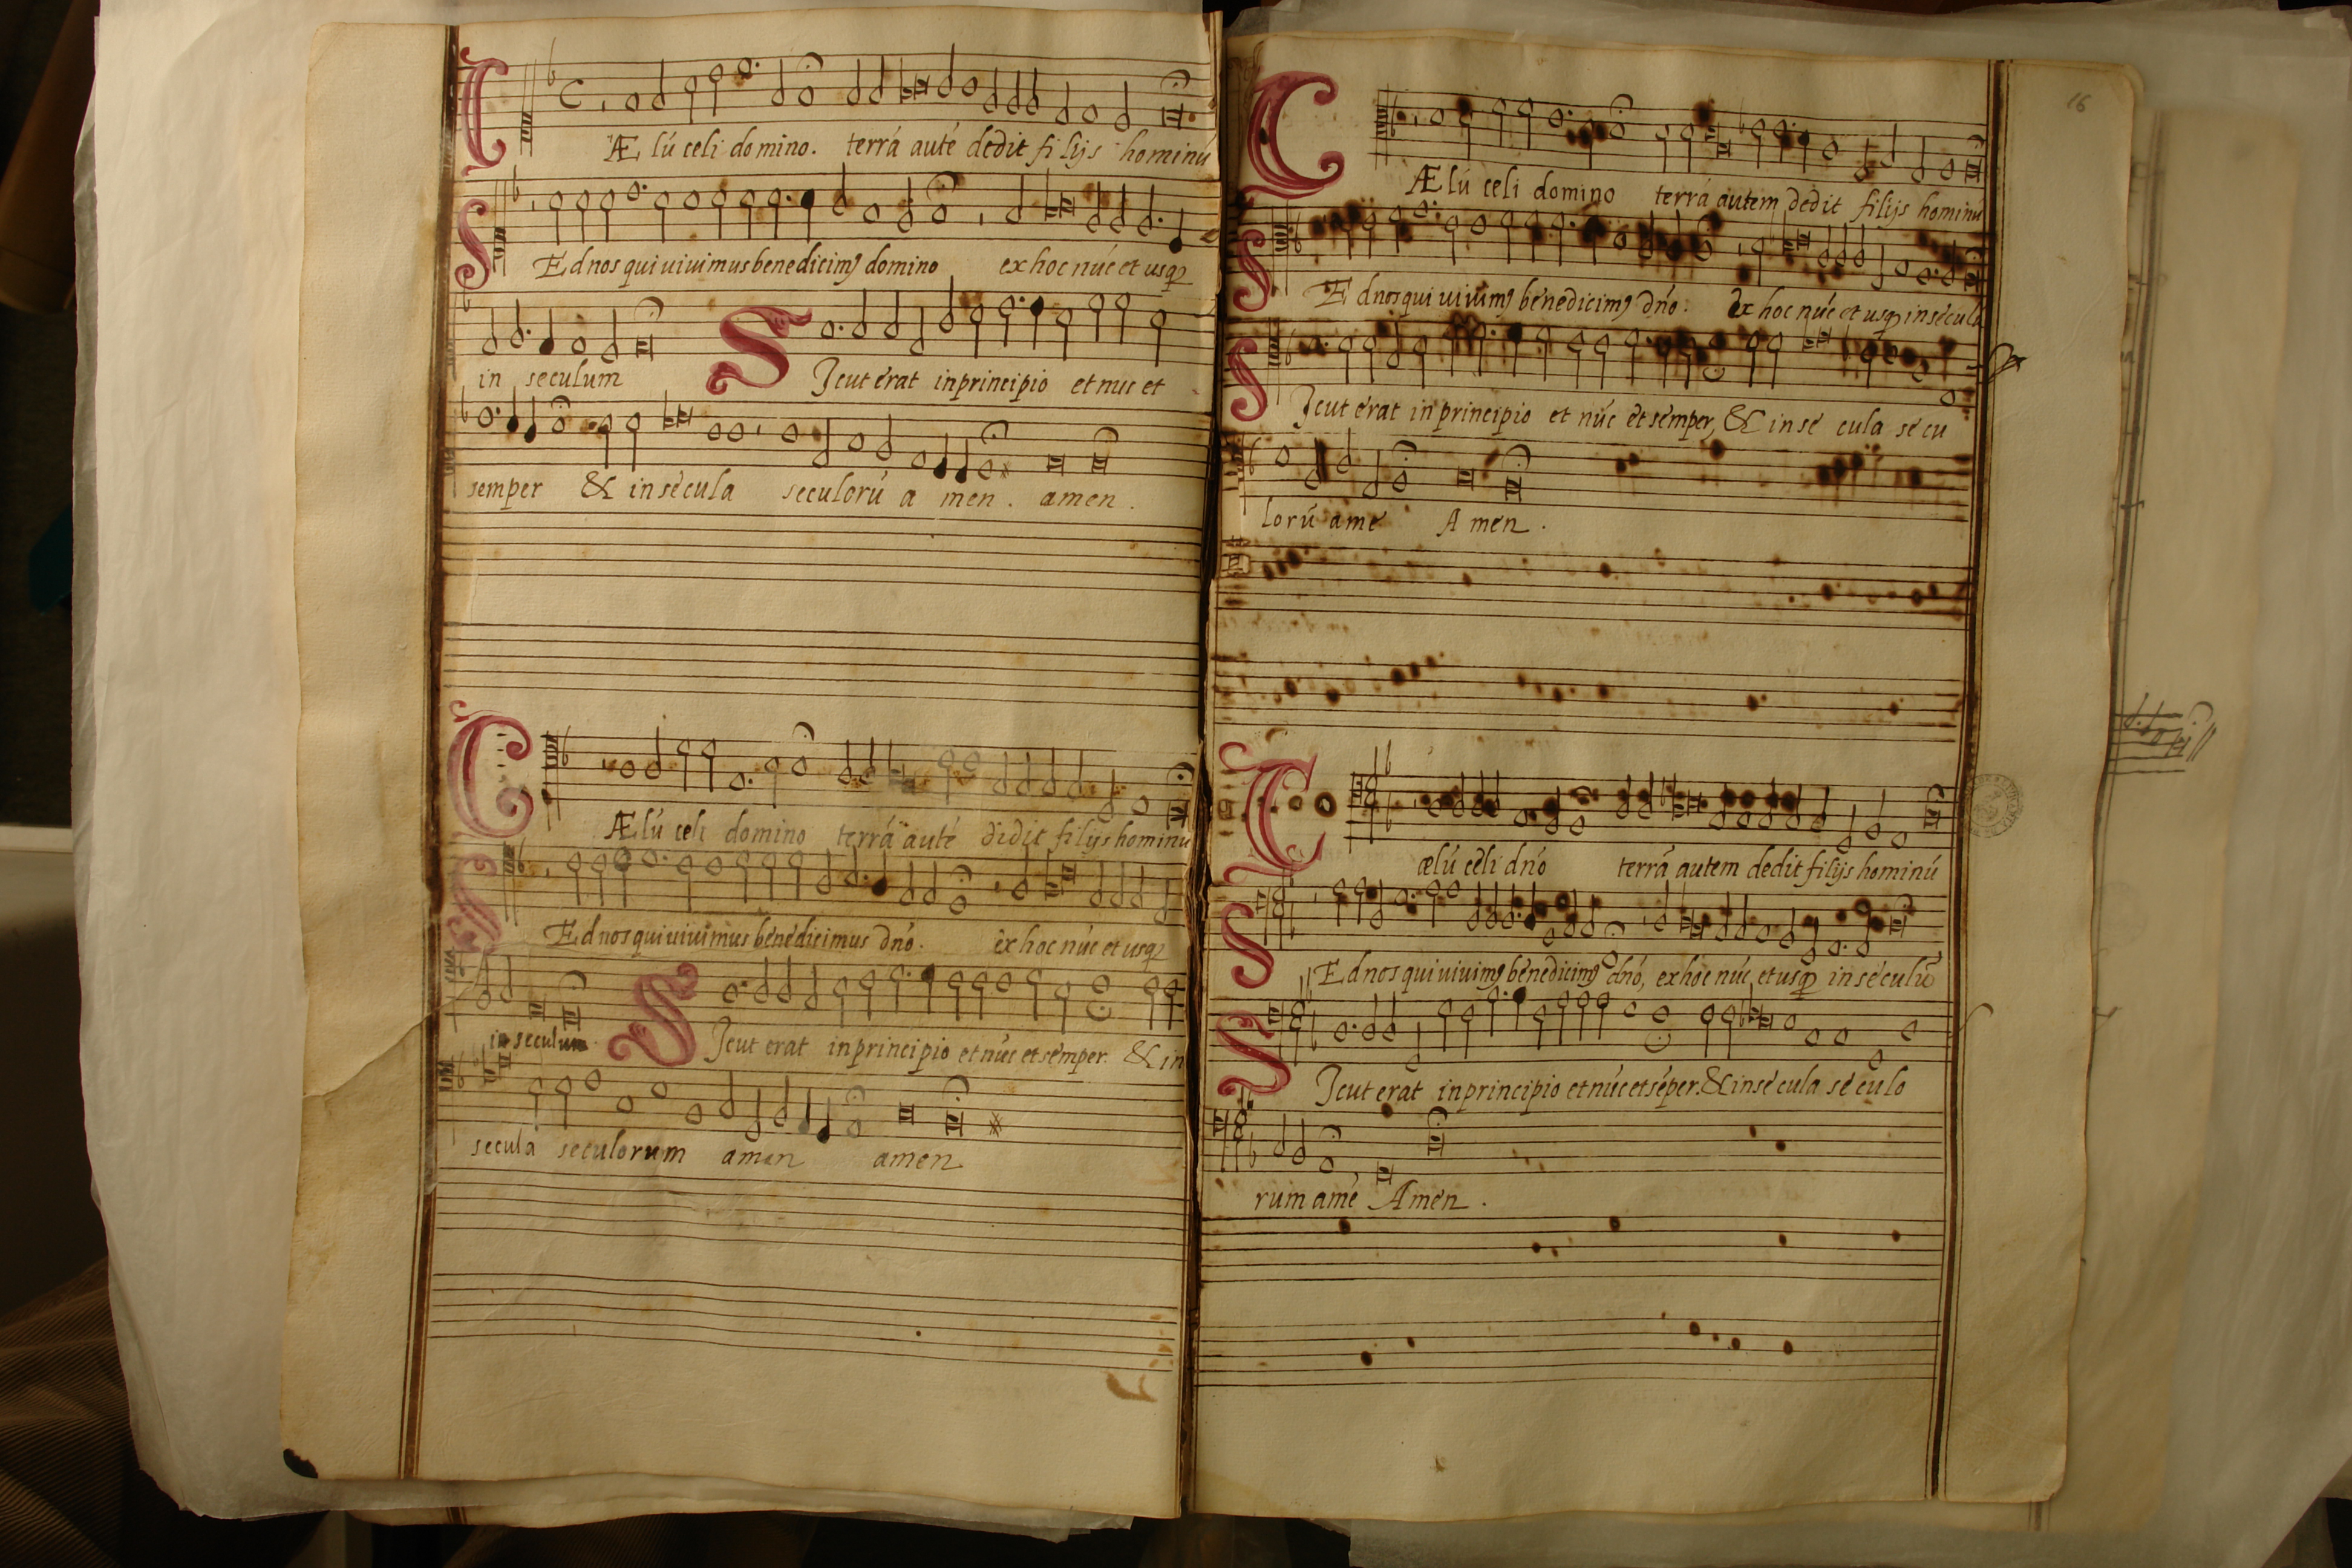 CÆlú celi domino. terrá auté dedit filijs hominú
SEd nos qui uiuimus benedicimꝰ domino ex hoc núc et usqꝫ
in seculum SIcut érat in principio et nuc et
semper & in sécula seculorú a men. amen.
CÆlú celi domino terrá auté didit filijs hominú
SEd nos qui uiuimus bénédicimus dnó. éx hoc núc et usqꝫ
in seculum. SIcut erat in principio et núc et sémper. & in
secula seculorum amen amen
16
CÆlú celi domino terrá autem dédit filijs hominú
SEd nos qui uiuimꝰ bénédicimꝰ dnó. éx hoc núc et usqꝫ in sécula
SIcut érat in principio et núc ét sémper, & in sé cula sé cu
lorú amé Amen.
Cælú céli dnó terrá autem dedit filijs hominú
SEd nos qui uiuimꝰ bénédicimꝰ dnó, ex hoc núc, et usqꝫ in séculú
SIcut erat in principio et núc et séper. & in sé cula sé culo
rum amé Amen.